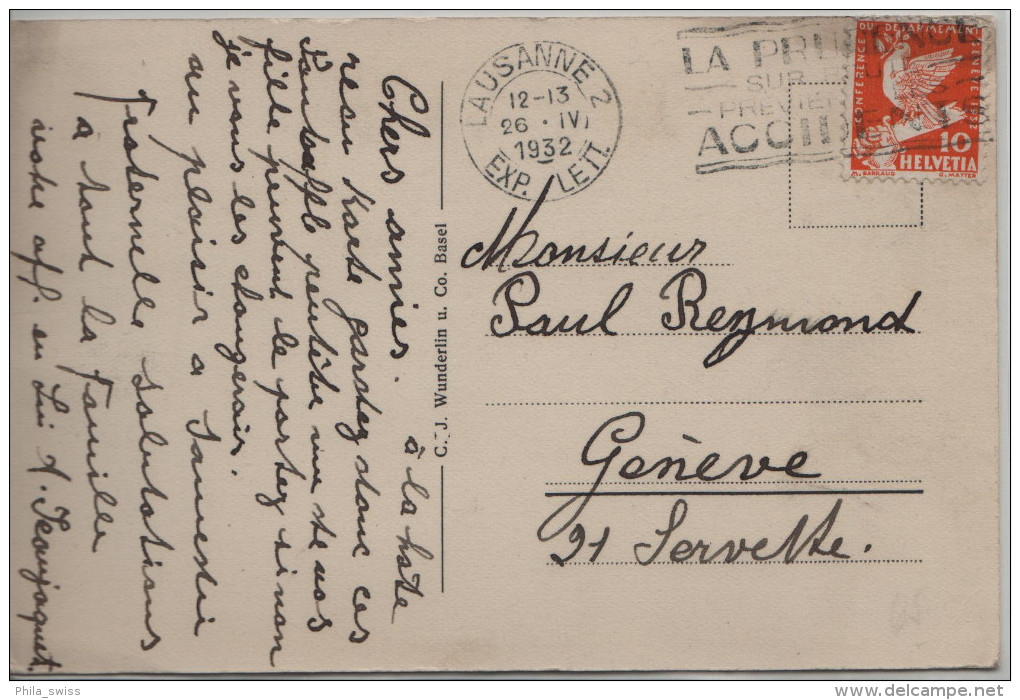 Chers amies. à la hâte
reçu Karte gardez donc ces
Pantoffle peutêtre une de vos
fille peuvent le portez sinon
je vous les changerais.
au plaisir a Samedi
Fraternelle salutations
à tout la Famille
votre aff. en Lui A. Jeanjaquet.
C. J. Wunderlin u. Co. Basel
LAUSANNE 2
12-13
26 · IV
1932
EXP. LETT.
LA PRUDENCE
SUR
PREVIENT
CONFERENCE DU DESARMEMENT GENEVE 1932
10
HELVETIA
M. BARRAUD G. MATTER
Monsieur
Paul Reymond
Genève
21 Servette.
Phila_swiss
www.delcampe.net